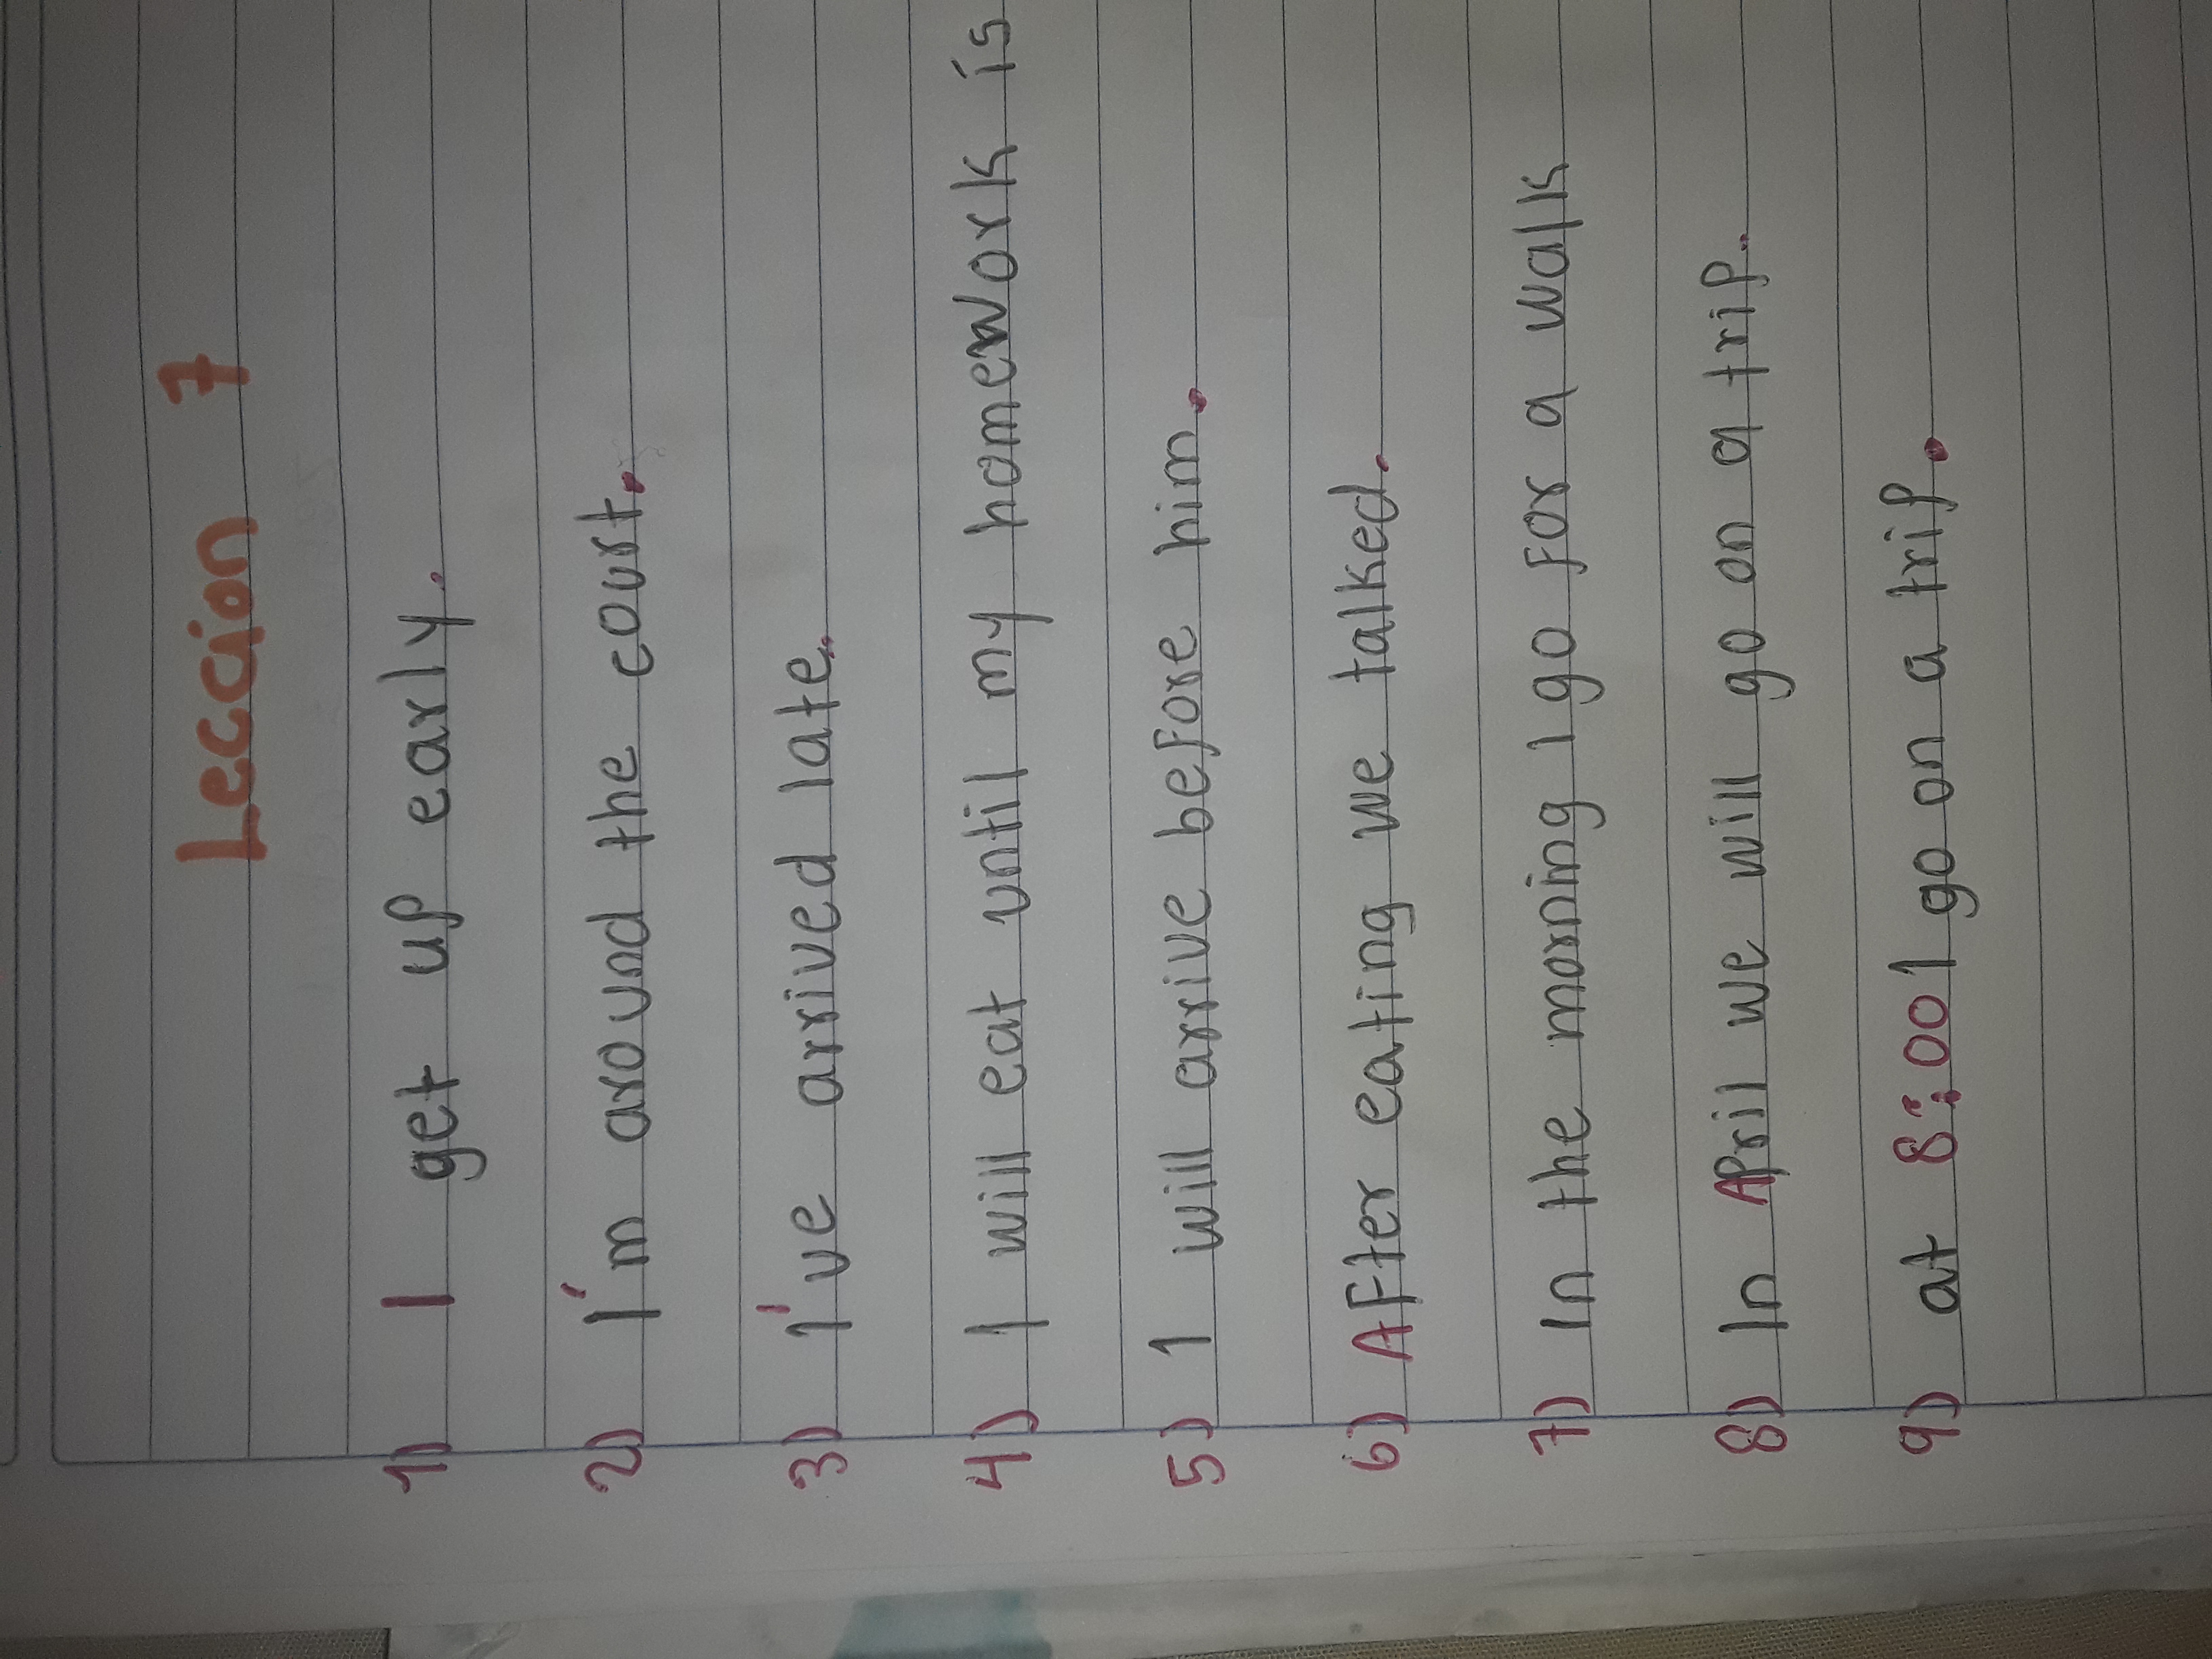 Leccion 7
1) I get up early.
2) I'm around the court.
3) I've arrived late.
4) I will eat until my homework is
5) I will arrive before him.
6) After eating we talked.
7) In the morning I go for a walk
8) In April we will go on a trip.
9) at 8:00 I go on a trip.